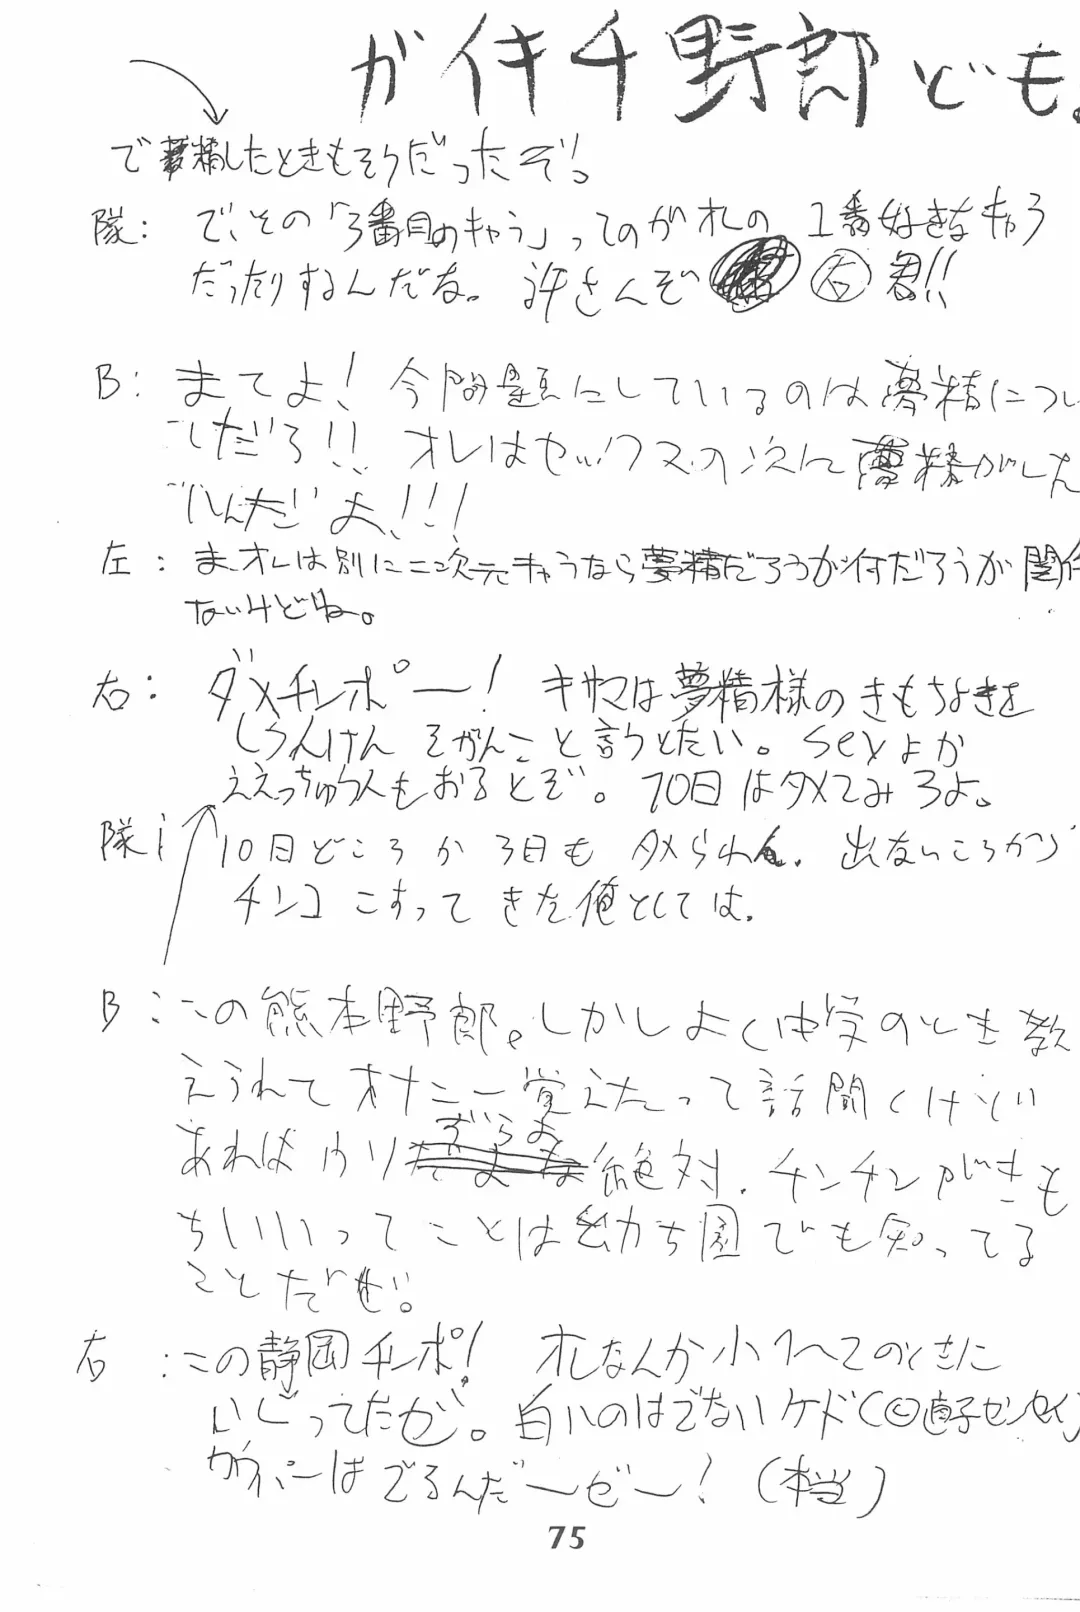 ガイキチ野郎ども。
で夢精したときもそうだったぞ。
隊: で、その「3番目のキャラ」ってのがオレの 1番好きなキャラ
だったりするんだな。許さんぞ 右 君!!
B: まてよ! 今問題にしているのは夢精につい
だろ!! オレはセックスの次に夢精がした
いんだよ!!!
左: ま、オレは別に二次元キャラなら夢精だろうが何だろうが関係
ないけどね。
右: ダメチンポー! キサマは夢精様のきもちよさを
しらんけん そがんこと言うとたい。sexよか
ええっちゅう人もおるとぞ。10日はタメてみろよ。
隊: 10日どころか3日もタメられん。出ないころから
チンコこすってきた俺としては。
B: この熊本野郎。しかしよく中学のとき教
えられてオナニー覚えたって話聞くけどい
あれはウソだよな 絶対。チンチンがきも
ちいいってことは幼ち園でも知ってる
ことだぜ。
右: この静岡チンポ! オレなんか小1〜2のときに
いじってたぜ。白いのはでないケド(©直子センセイ)
ガウパーはでるんだーぜー! (本当)
75